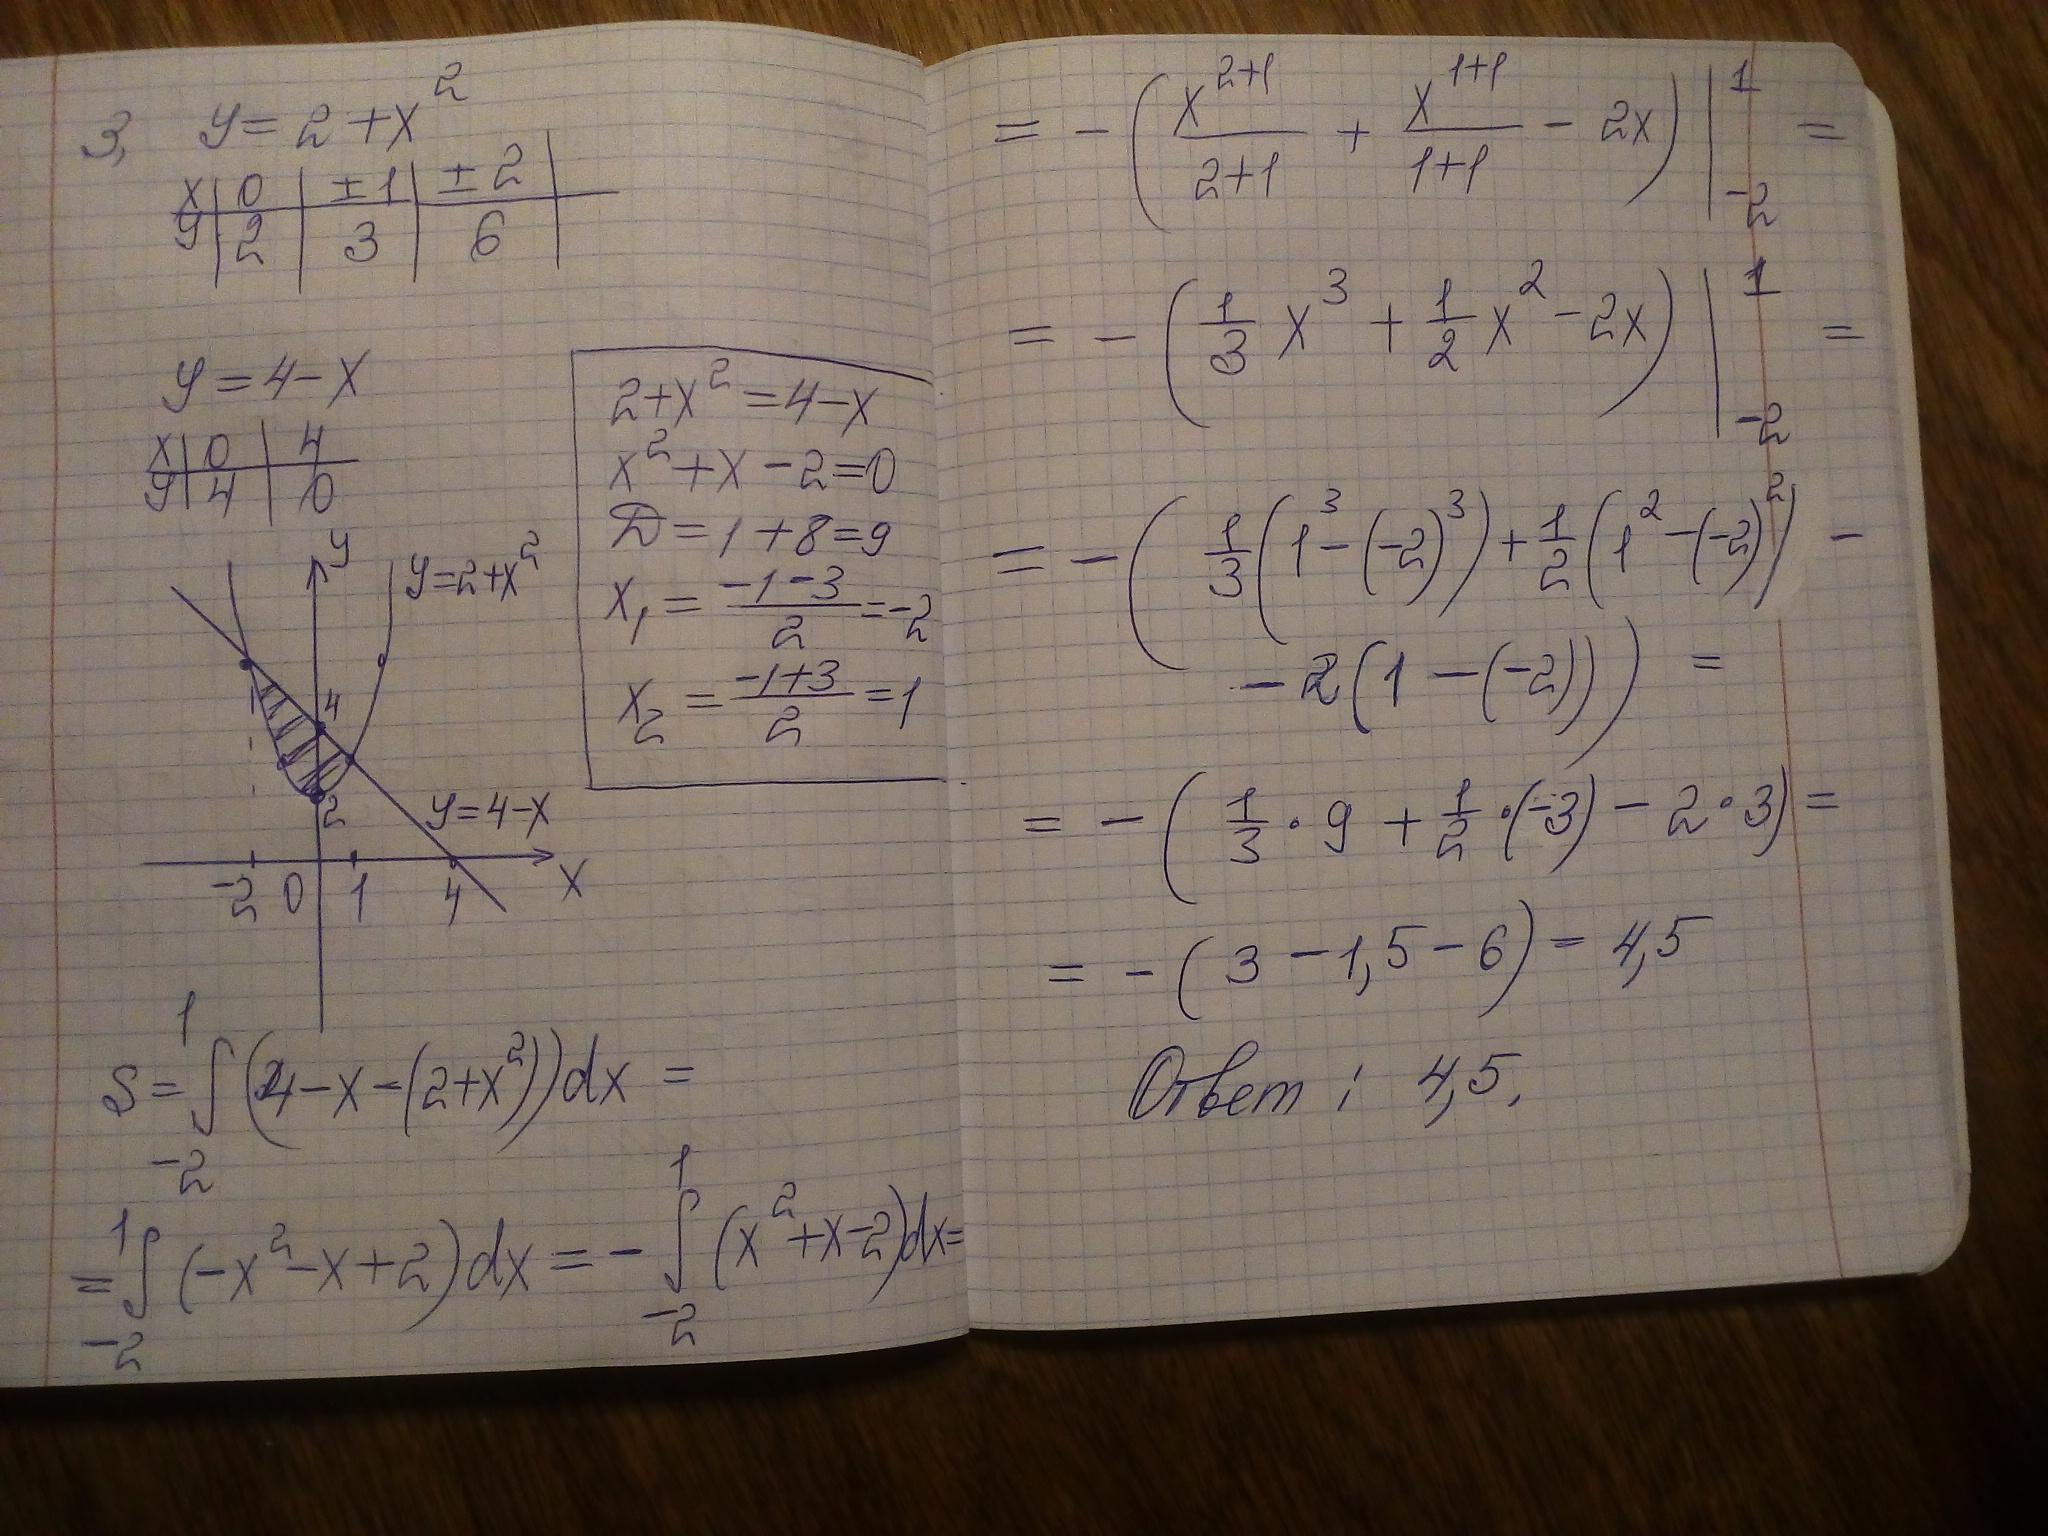 3, y = 2 + x²
x | 0 | ±1 | ±2
y | 2 | 3 | 6
y = 4 - x
x | 0 | 4
y | 4 | 0
2 + x² = 4 - x
x² + x - 2 = 0
D = 1 + 8 = 9
x₁ = (-1 - 3)/2 = -2
x₂ = (-1 + 3)/2 = 1
y
y = 2 + x²
4
2
y = 4 - x
-2 0 1 4 x
S = ∫₋₂¹ (4 - x - (2 + x²)) dx =
= ∫₋₂¹ (-x² - x + 2) dx = - ∫₋₂¹ (x² + x - 2) dx =
= - (x²⁺¹/(2+1) + x¹⁺¹/(1+1) - 2x) |₋₂¹ =
= - (1/3 x³ + 1/2 x² - 2x) |₋₂¹ =
= - (1/3 (1³ - (-2)³) + 1/2 (1² - (-2)²) -
- 2(1 - (-2))) =
= - (1/3 · 9 + 1/2 · (-3) - 2 · 3) =
= - (3 - 1,5 - 6) = 4,5
Ответ: 4,5.